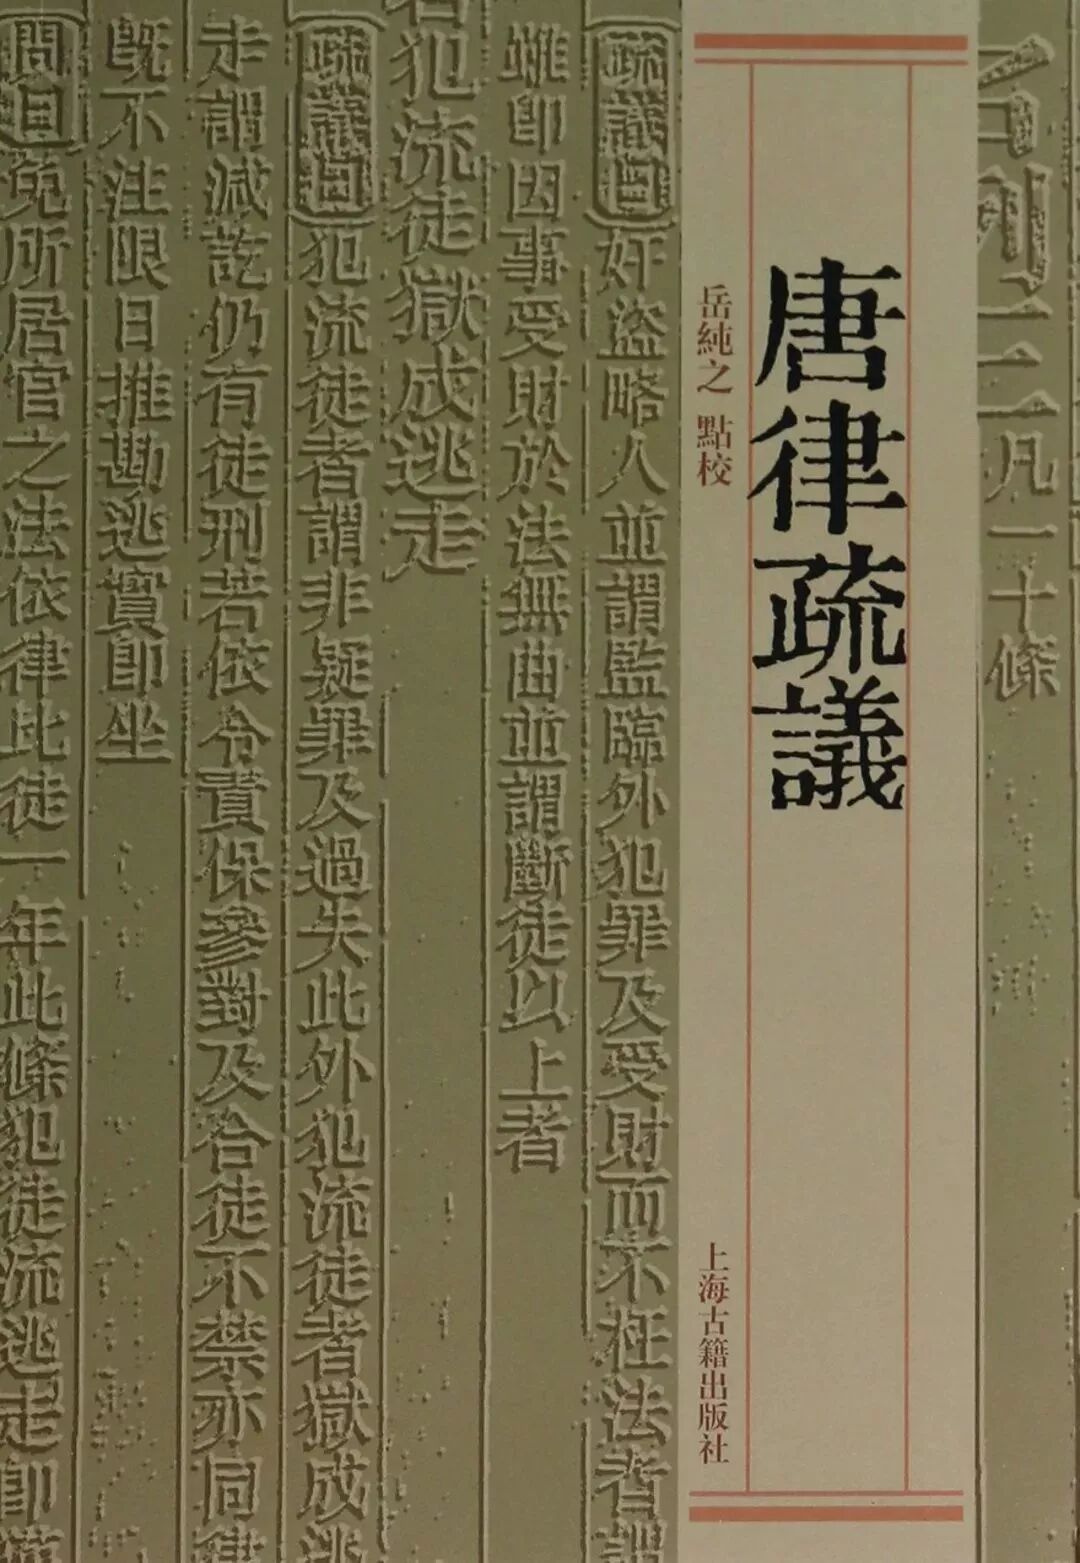 名例二 凡一十條
唐律疏議
岳純之 點校
上海古籍出版社
疏議曰奸盜略人並謂監臨外犯罪及受財而不枉法者謂
雖即因事受財於法無曲並謂斷徒以上者
若犯流徒獄成逃走
疏議曰犯流徒者謂非疑罪及過失此外犯流徒者獄成逃
走謂減訖仍有徒刑若依令責保參對及合徒不禁亦同律
既不注限日推勘逃實即坐
問曰免所居官之法依律比徒一年此條犯徒流逃走即